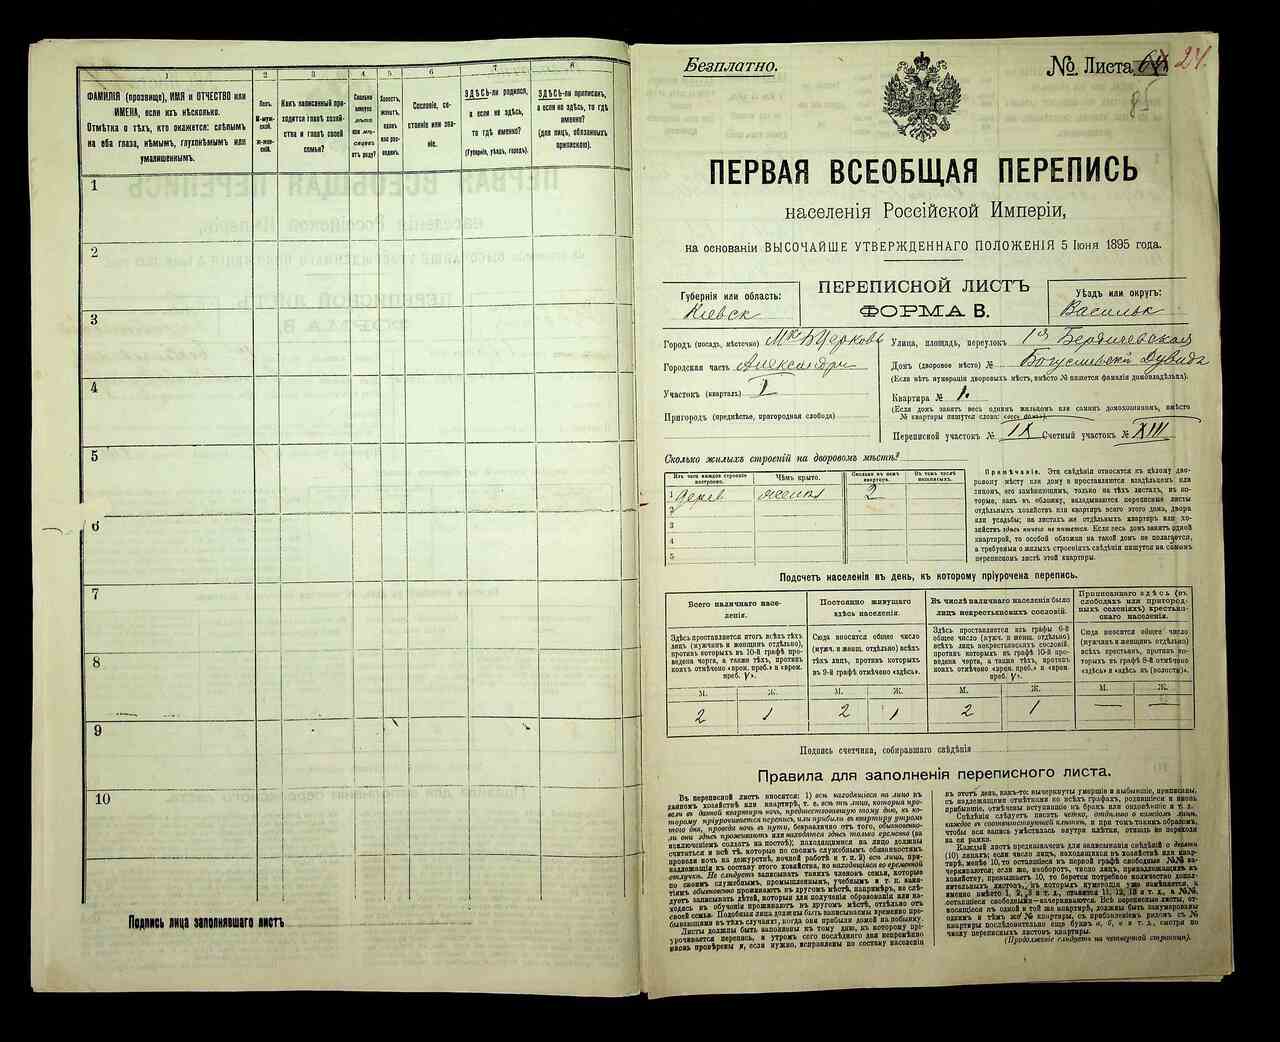 1
2
3
4
5
6
7
8
ФАМИЛІЯ (прозвище), ИМЯ и ОТЧЕСТВО или
ИМЕНА, если ихъ нѣсколько.
Отмѣтка о тѣхъ, кто окажется: слѣпымъ
на оба глаза, нѣмымъ, глухонѣмымъ или
умалишеннымъ.
Полъ.
М-муж-
ской.
Ж-жен-
скій.
Какъ записанный при-
ходится главѣ хозяй-
ства и главѣ своей
семьи?
Сколько
минуло
лѣтъ
или мѣ-
сяцевъ
отъ роду?
Холостъ,
женатъ,
вдовъ
или раз-
веденъ.
Сословіе, со-
стояніе или зва-
ніе.
ЗДѢСЬ-ли родился,
а если не здѣсь,
то гдѣ именно?
(Губернія, уѣздъ, городъ).
ЗДѢСЬ-ли приписанъ,
а если не здѣсь, то гдѣ
именно?
(для лицъ, обязанныхъ
припискою).
1
2
3
4
5
6
7
8
9
10
Подпись лица заполнявшаго листъ
Безплатно.
№ Листа 24.
85
ПЕРВАЯ ВСЕОБЩАЯ ПЕРЕПИСЬ
населенія Россійской Имперіи,
на основаніи ВЫСОЧАЙШЕ УТВЕРЖДЕННАГО ПОЛОЖЕНІЯ 5 Іюня 1895 года.
Губернія или область:
Кіевск
ПЕРЕПИСНОЙ ЛИСТЪ
ФОРМА В.
Уѣздъ или округъ:
Васильк
Городъ (посадъ, мѣстечко) М№ БЦерковь
Городская часть Александрі
Участокъ (кварталъ) I
Пригородъ (предмѣстье, пригородная слобода)
Улица, площадь, переулокъ 1я Бердичевская
Домъ (дворовое мѣсто) № Богуславскій Дувидъ
(Если нѣтъ нумераціи дворовыхъ мѣстъ, вмѣсто № пишется фамилія домовладѣльца).
Квартира № 1.
(Если домъ занятъ весь однимъ жильцомъ или самимъ домохозяиномъ, вмѣсто
№ квартиры пишутся слова: «весь домъ»).
Переписной участокъ № IX Счетный участокъ № XIII
Сколько жилыхъ строеній на дворовомъ мѣстѣ?
Изъ чего каждое строеніе
построено.
Чѣмъ крыто.
Сколько въ немъ
квартиръ.
Въ томъ числѣ
незанятыхъ.
1 дерев
2
2
3
4
5
Примѣчаніе. Эти свѣдѣнія относятся къ цѣлому дво-
ровому мѣсту или дому и проставляются владѣльцемъ или
лицомъ, его замѣняющимъ, только на тѣхъ листахъ, въ ко-
торые, какъ въ обложку, вкладываются переписные листы
отдѣльныхъ хозяйствъ или квартиръ всего этого дома, двора
или усадьбы; на листахъ же отдѣльныхъ квартиръ или хо-
зяйствъ здѣсь ничего не пишется. Если весь домъ занятъ одной
квартирой, то особой обложки на такой домъ не полагается,
а требуемыя о жилыхъ строеніяхъ свѣдѣнія пишутся на самомъ
переписномъ листѣ этой квартиры.
Подсчетъ населенія въ день, къ которому пріурочена перепись.
Всего наличнаго насе-
ленія.
Постоянно живущаго
здѣсь населенія.
Въ числѣ наличнаго населенія было
лицъ некрестьянскихъ сословій.
Приписаннаго здѣсь (въ
слободахъ или пригород-
ныхъ селеніяхъ) крестьян-
скаго населенія.
Здѣсь проставляется итогъ всѣхъ тѣхъ
лицъ (мужчинъ и женщинъ отдѣльно),
противъ которыхъ въ 10-й графѣ про-
ведена черта, а также тѣхъ, противъ
коихъ отмѣчено «врем. преб.» и «врем.
преб. V».
Сюда вносится общее число
(мужч. и женщ. отдѣльно) всѣхъ
тѣхъ лицъ, противъ которыхъ
въ 9-й графѣ отмѣчено «здѣсь».
Здѣсь проставляется изъ графы 6-й
общее число (мужч. и женщ. отдѣльно)
всѣхъ лицъ некрестьянскихъ сословій,
противъ коихъ въ графѣ 10-й прове-
дена черта, а также тѣхъ, противъ
коихъ отмѣчено «врем. преб.» и «врем.
преб. V».
Сюда вносится общее число
(мужчинъ и женщинъ отдѣльно)
всѣхъ крестьянъ, противъ ко-
торыхъ въ графѣ 8-й отмѣчено
«здѣсь» и «здѣсь къ (волости)».
М. Ж. М. Ж. М. Ж. М. Ж.
2 1 2 1 2 1 — —
Подпись счетчика, собиравшаго свѣдѣнія
Правила для заполненія переписного листа.
Въ переписной листъ вносятся: 1) всѣ находящіеся на лицо въ
данномъ хозяйствѣ или квартирѣ, т. е. всѣ тѣ лица, которыя про-
вели въ данной квартирѣ ночь, предшествовавшую тому дню, къ ко-
торому пріурочивается перепись, или прибыли въ квартиру утромъ
того дня, проведя ночь въ пути, безразлично отъ того, обыкновенно-
ли они здѣсь проживаютъ или находятся здѣсь только временно (за
исключеніемъ солдатъ на постоѣ); находящимися на лицо должны
считаться и всѣ тѣ, которые по своимъ служебнымъ обязанностямъ
провели ночь на дежурствѣ, ночной работѣ и т. п. 2) всѣ лица, при-
надлежащія къ составу этого хозяйства, но находящіяся во временной
отлучкѣ. Не слѣдуетъ записывать такихъ членовъ семьи, которые
по своимъ служебнымъ, промышленнымъ, учебнымъ и т. п. заня-
тіямъ обыкновенно проживаютъ въ другомъ мѣстѣ, напримѣръ, не слѣ-
дуетъ записывать дѣтей, которыя для полученія образованія или на-
ходясь въ обученіи проживаютъ въ другомъ мѣстѣ, отдѣльно отъ
своей семьи. Подобныя лица должны быть записываемы временно пре-
бывающими въ тѣхъ случаяхъ, когда они прибыли домой на побывку.
Листы должны быть заполнены къ тому дню, къ которому прі-
урочивается перепись, и утромъ сего послѣдняго дня непремѣнно
вновь провѣрены и, если нужно, исправлены по составу населенія
въ этотъ день, какъ-то: вычеркнуты умершіе и выбывшіе, приписаны,
съ надлежащими отмѣтками во всѣхъ графахъ, родившіеся и вновь
прибывшіе, отмѣчены вступившіе въ бракъ или овдовѣвшіе и т. д.
Свѣдѣнія слѣдуетъ писать четко, отдѣльно о каждомъ лицѣ,
каждое въ соотвѣтствующей клеткѣ, и при томъ такимъ образомъ,
чтобы вся запись умѣстилась внутри клѣтки, отнюдь не переходя
на ея рамки.
Каждый листъ предназначенъ для записыванія свѣдѣній о десяти
(10) лицахъ; если число лицъ, находящихся въ хозяйствѣ или квар-
тирѣ, менѣе 10, то оставшіеся въ первой графѣ свободные №№ вы-
черкиваются; если же, наоборотъ, число лицъ, принадлежащихъ къ
хозяйству, превышаетъ 10, то берется потребное количество допол-
нительныхъ листовъ, въ которыхъ нумерація уже измѣняется, а
именно вмѣсто 1, 2, 3 и т. д., ставятся 11, 12, 13 и т. д., а №№,
оставшіеся свободными—вычеркиваются. Всѣ переписные листы, от-
носящіеся къ одной и той же квартирѣ, должны быть занумерованы
однимъ и тѣмъ же № квартиры, съ прибавленіемъ рядомъ съ №
квартиры послѣдовательно еще буквъ а, б, в и т. д., смотря по
числу переписныхъ листовъ квартиры.
(Продолженіе слѣдуетъ на четвертой страницѣ).